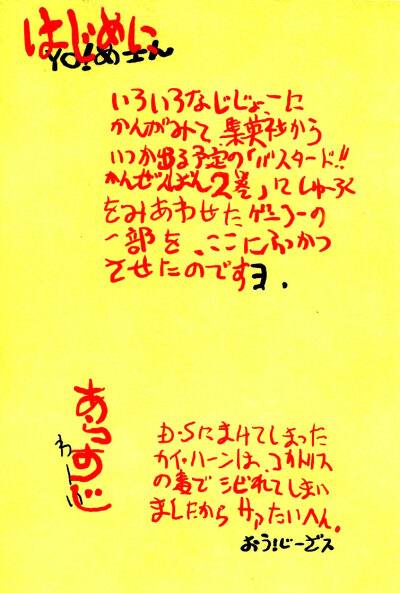 はじめに
YO!めーん
いろいろなじじょーに
かんがみて、集英社から
いつか出る予定の「バスタード!!
かんぜんばん2巻」にしゅーろく
をみあわせたゲンコーの
一部を、ここにふっかつ
させたのですヨ.
あらすじ
わーい
D・Sにまけてしまった
カイ・ハーンは、コカトリス
の毒でシビれてしまい
ましたからサアたいへん。
おう!じーざス